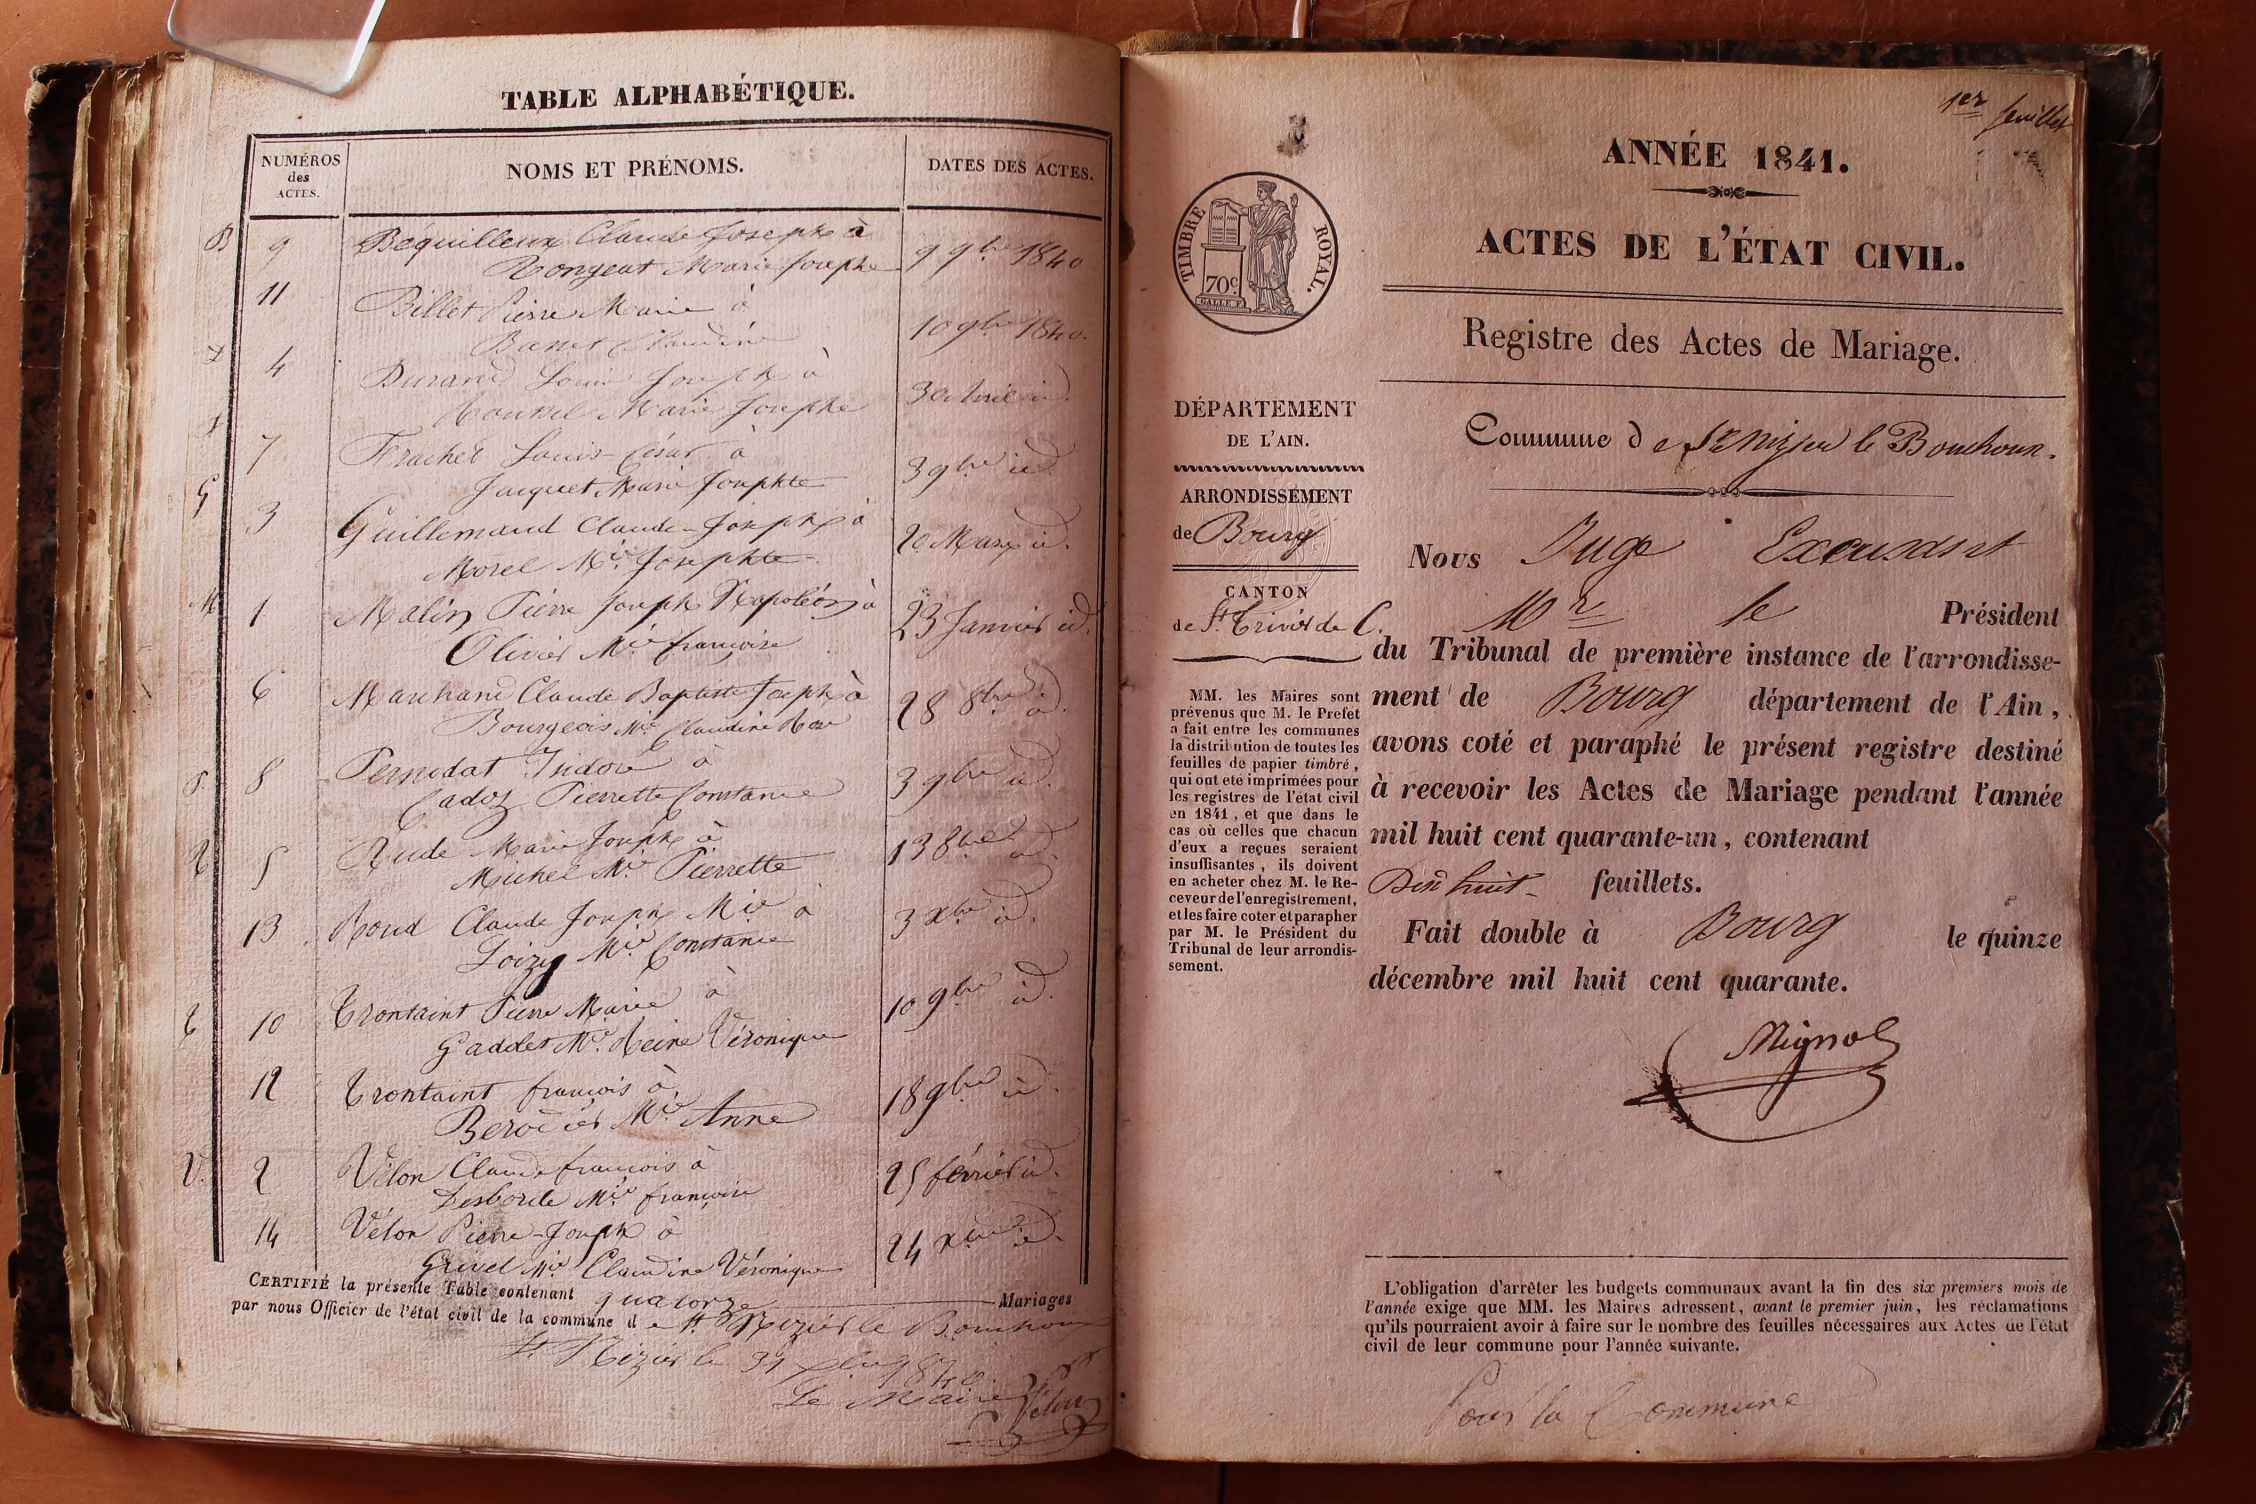 TABLE ALPHABÉTIQUE.
NUMÉROS
des
ACTES.
NOMS ET PRÉNOMS.
DATES DES ACTES.
B 9 Béquilleux Claude Joseph à
Rongeat Marie Josephe 9 9bre 1840
11 Billet Pierre Marie à
Claudine 10 9bre 1840.
D 4 Durand Louis Joseph à
Marie Josephe 30 Avril id.
F 7 Frachet Louis-César à
Jacquet Marie Josephte 3 9bre id.
G 3 Guillemaud Claude-Joseph à
Morel Mie Josephte 20 Mars id.
M 1 Malin Pierre Joseph Napoléon à
Olivier Mie françoise 23 Janvier id.
6 Marchand Claude Baptiste Joseph à
Bourgeois Mie Claudine 28 8bre id.
P 8 Pernodat Isidore à
Cadoz Pierrette Constance 3 9bre id.
R 5 Rude Marie Joseph à
Michel Mie Pierrette 13 8bre id.
13 Roud Claude Joseph Mie à
Loizy Mie Constance 3 Xbre id.
T 10 Trontaint Pierre Marie à
Gaddet Mie Reine Véronique 10 9bre id.
12 Trontaint françois à
Mie Anne 18 9bre id.
V. 2 Vélon Claude françois à
Desborde Mie françoise 25 février id.
14 Vélon Pierre-Joseph à
Grivel Mie Claudine Véronique 24 Xbre id.
CERTIFIÉ la présente Table contenant quatorze Mariages
par nous Officier de l'état civil de la commune de St Nizier le Bouchoux
St Nizier le 31 Xbre 1840.
Le Maire
Vélon
1er feuillet
ANNÉE 1841.
ACTES DE L'ÉTAT CIVIL.
TIMBRE ROYAL.
70c.
Registre des Actes de Mariage.
DÉPARTEMENT
DE L'AIN.
ARRONDISSEMENT
de Bourg
CANTON
de St Trivier de C.
MM. les Maires sont
prévenus que M. le Prefet
a fait entre les communes
la distribution de toutes les
feuilles de papier timbré,
qui ont eté imprimées pour
les registres de l'état civil
en 1841, et que dans le
cas où celles que chacun
d'eux a reçues seraient
insuffisantes, ils doivent
en acheter chez M. le Re-
ceveur de l'enregistrement,
et les faire coter et parapher
par M. le Président du
Tribunal de leur arrondis-
sement.
Commune de St Nizier le Bouchoux.
Nous Juge Excusant
Mr le Président
du Tribunal de première instance de l'arrondisse-
ment de Bourg département de l'Ain,
avons coté et paraphé le présent registre destiné
à recevoir les Actes de Mariage pendant l'année
mil huit cent quarante-un, contenant
Dix huit feuillets.
Fait double à Bourg le quinze
décembre mil huit cent quarante.
Mignot
L'obligation d'arrêter les budgets communaux avant la fin des six premiers mois de
l'année exige que MM. les Maires adressent, avant le premier juin, les réclamations
qu'ils pourraient avoir à faire sur le nombre des feuilles nécessaires aux Actes de l'état
civil de leur commune pour l'année suivante.
Pour la Commune